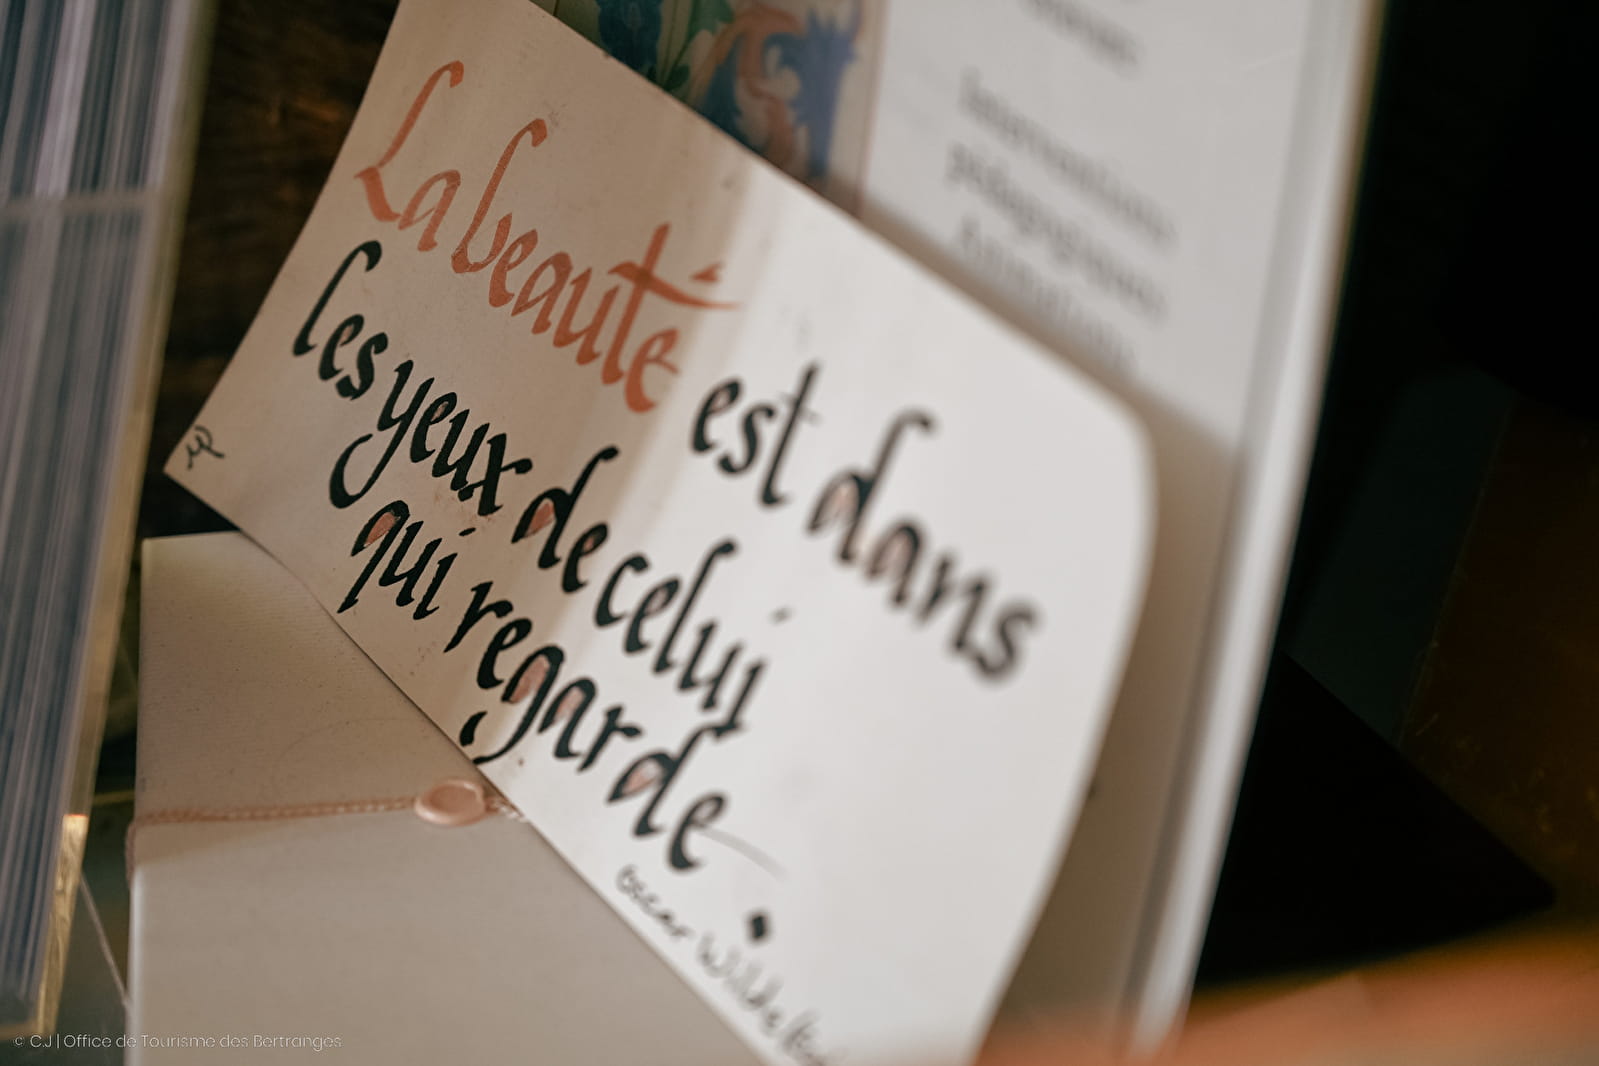 La beauté est dans
les yeux de celui
qui regarde
Oscar Wilde
MP
pédagogiques
© C.J | Office de Tourisme des Bertranges